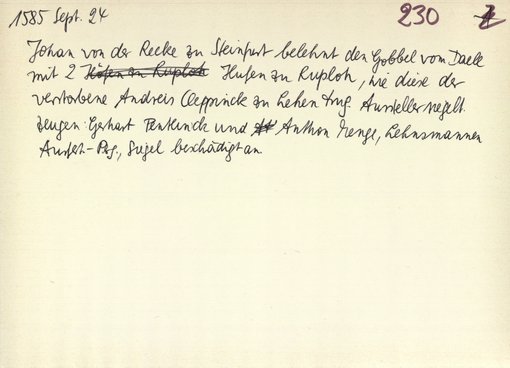 1585 Sept. 24 230
Johan von der Recke zu Steinfurt belehnt den Gobbel vom Daele
mit 2 Höfen zu Ruploh Hufen zu Ruploh, wie diese der
verstorbene Andreis Cleppinck zu Lehen trug. Aussteller siegelt.
Zeugen: Gerhart und Anthon Menge, Lehnsmannen
Ausfert.-Perg., Siegel beschädigt an.